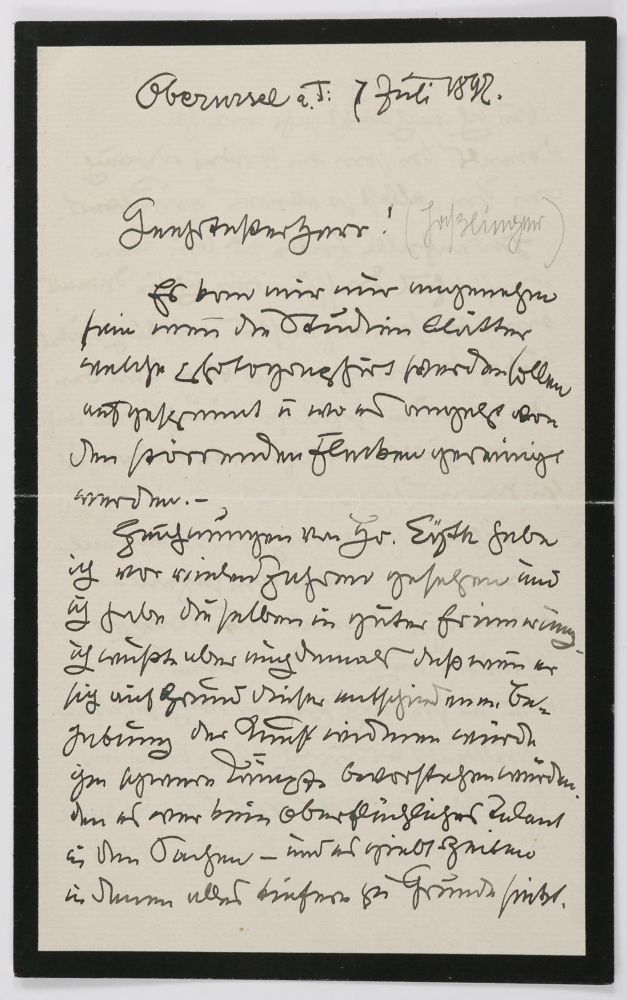 Oberursel a. T: 7 Juli 1897.
Geehrtester Herr! (Haßlinger)
Es kan mir nur angenehm
sein wenn die Studien Blätter
welche photographirt werden sollen
aufgespannt u wo es angeht von
den störrenden Flecken gereinigt
werden. –
Zeichnungen von Hr. Eysen habe
ich vor vielen Jahren gesehen und
ich habe dieselben in guter Erinnerung
ich wußte aber auch damals daß wenn er
sich auf Grund dieser entschiedenen Be-
gabung der Kunst widmen würde
ihm schwere Kämpfe bevorstehen würden.
den es war kein Oberflächliches Talent
in den Sachen – und es giebt Zeiten
in denen alles tiefere zu Grunde sinkt.